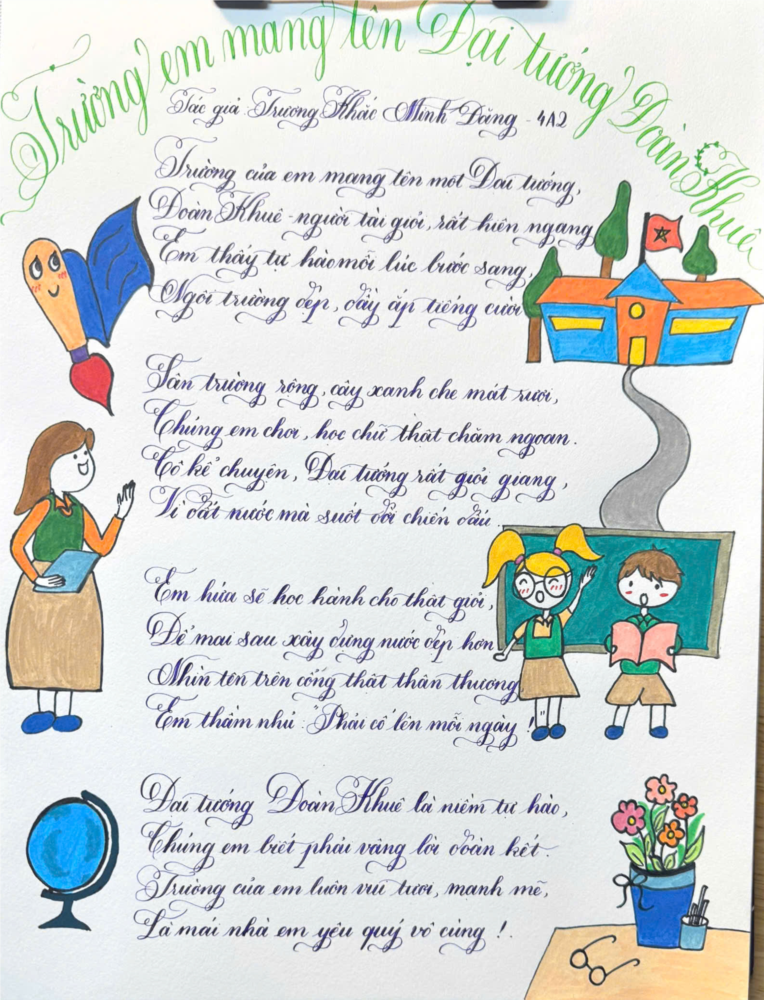 Trường em mang tên Đại tướng Đoàn Khuê
Tác giả Trương Khắc Minh Đăng - 4A2
Trường của em mang tên một Đại tướng,
Đoàn Khuê - người tài giỏi, rất hiên ngang
Em thấy tự hào mỗi lúc bước sang,
Ngôi trường đẹp, đầy ắp tiếng cười
Sân trường rộng, cây xanh che mát rười,
Chúng em chơi, học chữ thật chăm ngoan.
Cô kể chuyện, Đại tướng rất giỏi giang,
Vì đất nước mà suốt đời chiến đấu.
Em hứa sẽ học hành cho thật giỏi,
Để mai sau xây dựng nước đẹp hơn
Nhìn tên trên cổng thật thân thương
Em thầm nhủ: "Phải cố lên mỗi ngày!
Đại tướng Đoàn Khuê là niềm tự hào,
Chúng em biết phải vâng lời đoàn kết.
Trường của em luôn vui tươi, mạnh mẽ,
Là mái nhà em yêu quý vô cùng!.